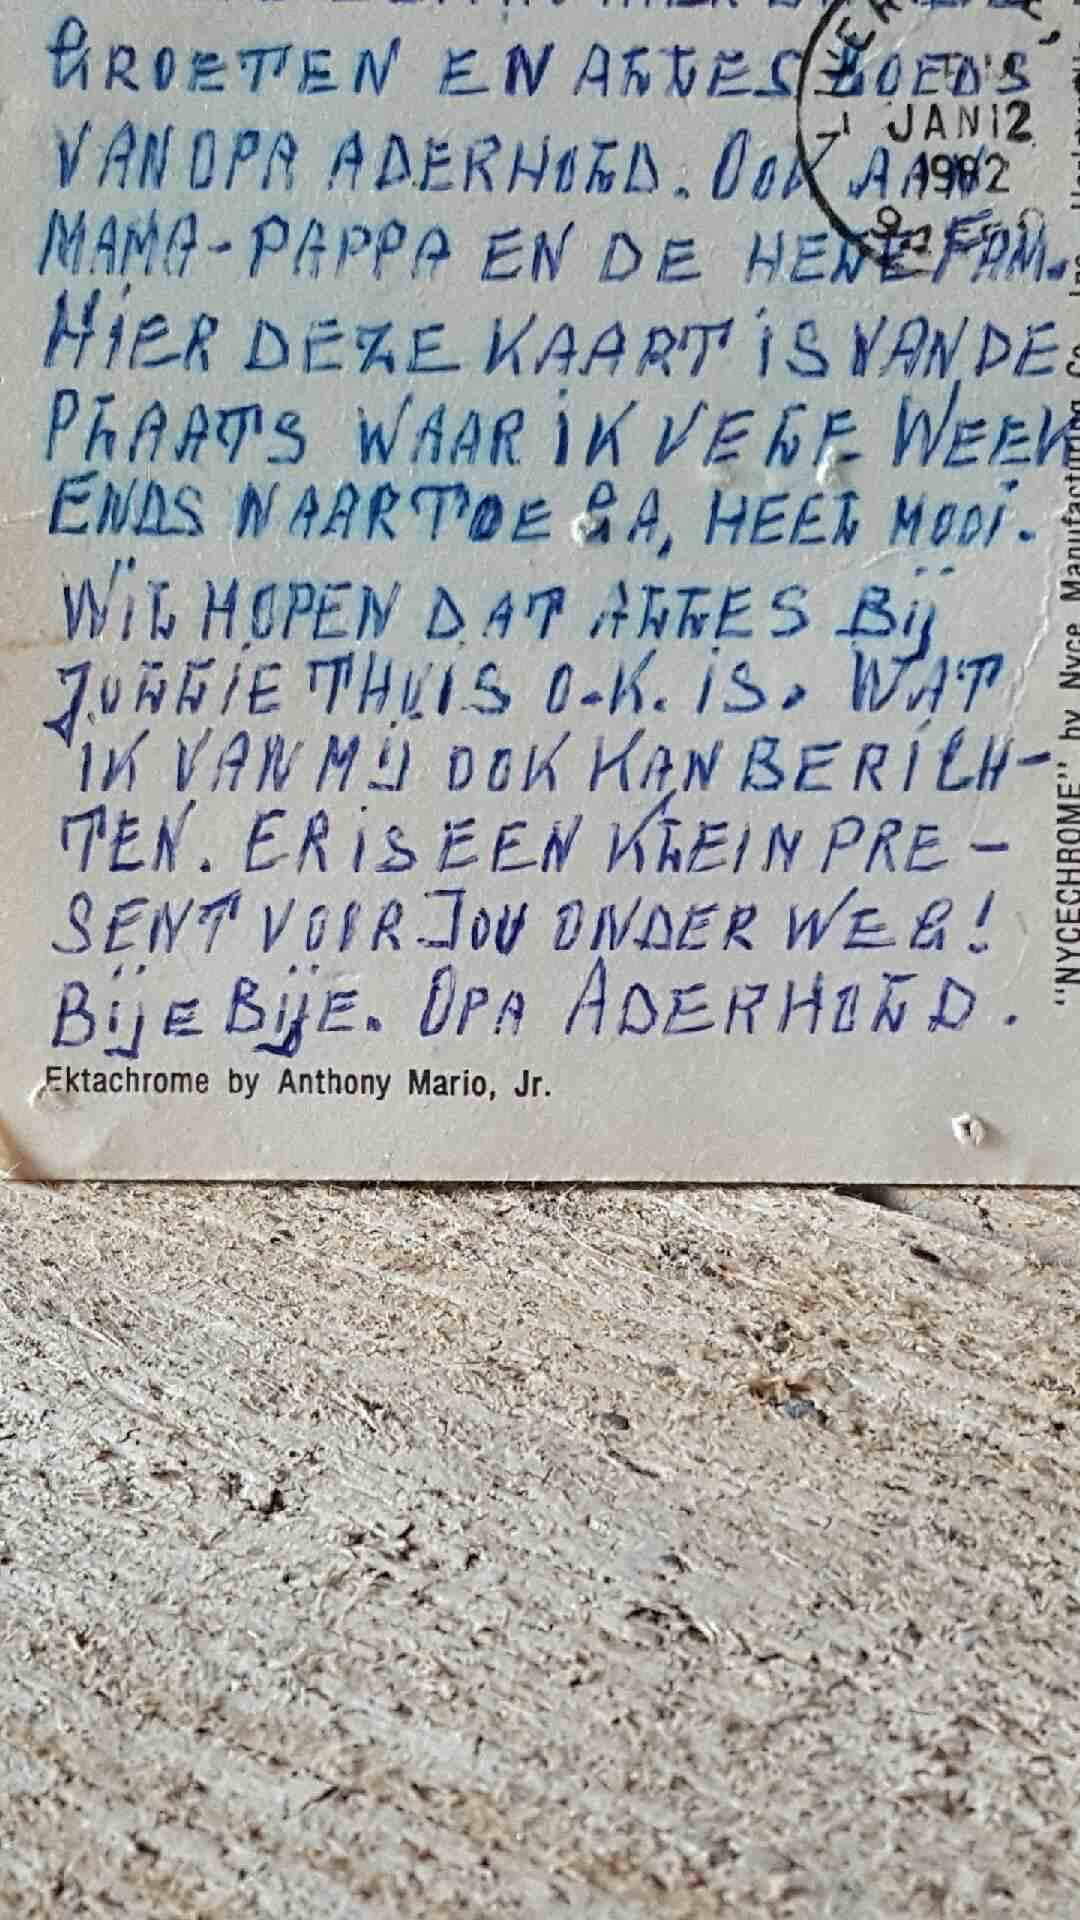 GROETEN EN ALLES GOEDS
VAN OPA ADERHOLD. OOK AAN
MAMA-PAPPA EN DE HELE FAM.
HIER DEZE KAART IS VAN DE
PLAATS WAAR IK VELE WEEK
ENDS NAAR TOE GA, HEEL MOOI.
WIL HOPEN DAT ALLES BIJ
JULLIE THUIS O.K. IS. WAT
IK VAN MIJ OOK KAN BERICH-
TEN. ER IS EEN KLEIN PRE-
SENT VOOR JOU ONDER WEG!
BIJE BIJE. OPA ADERHOLD.
Ektachrome by Anthony Mario, Jr.
JAN 12
1982
"NYCECHROME" by Nyce Manufacturing Co., Inc.